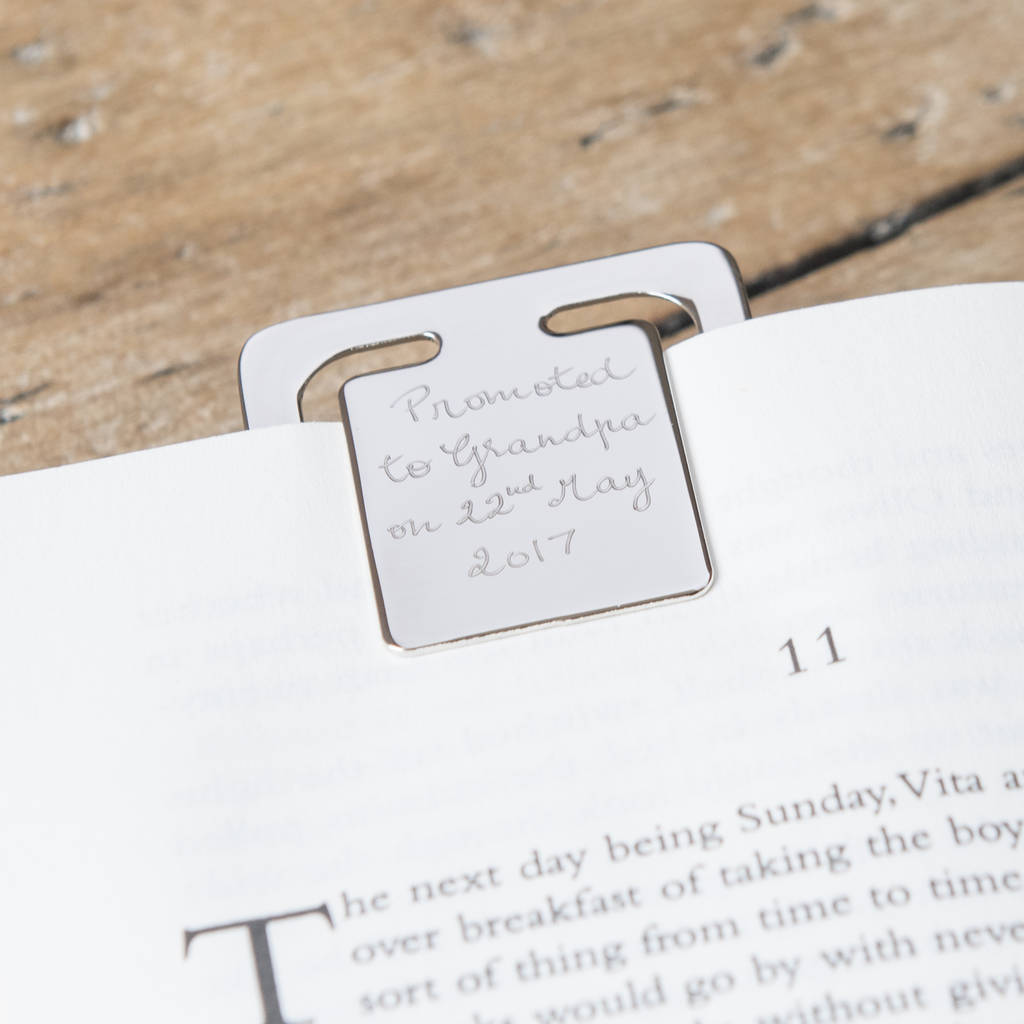 Promoted
to Grandpa
on 22nd May
2017
11
The next day being Sunday, Vita a
over breakfast of taking the boy
sort of thing from time to time
would go by with neve
without givi